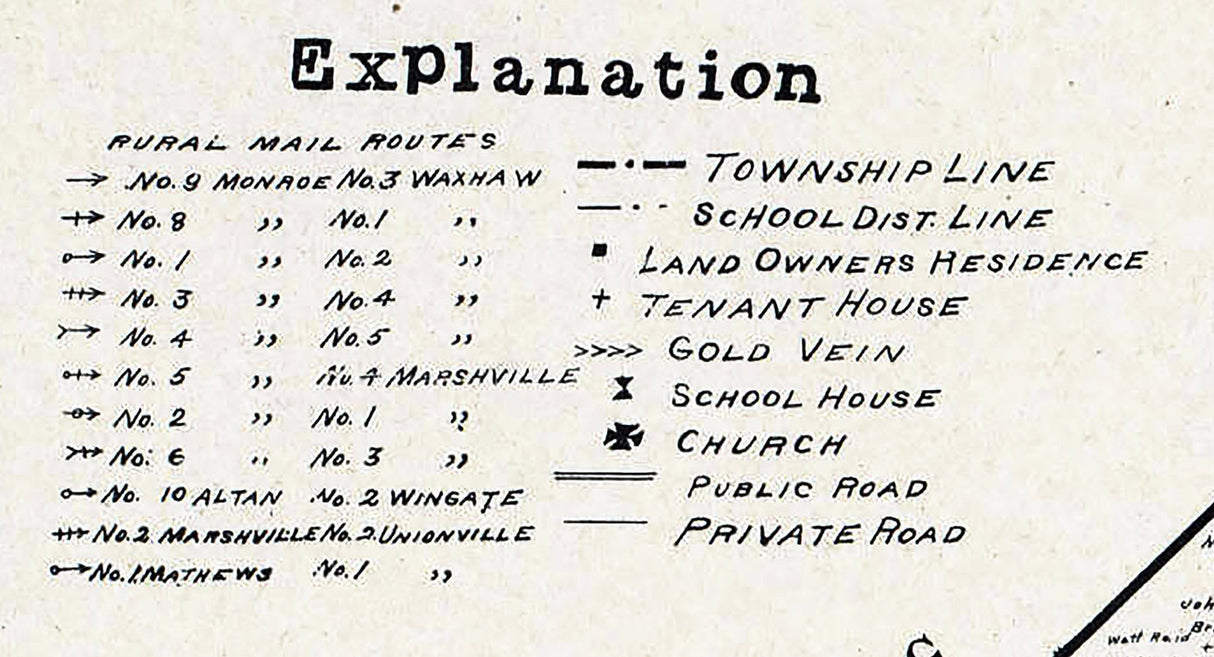 Explanation
RURAL MAIL ROUTES
No. 9 MONROE No. 3 WAXHAW
No. 8 ,, No. 1 ,,
No. 1 ,, No. 2 ,,
No. 3 ,, No. 4 ,,
No. 4 ,, No. 5 ,,
No. 5 ,, No. 4 MARSHVILLE
No. 2 ,, No. 1 ,,
No: 6 ,, No. 3 ,,
No. 10 ALTAN No. 2 WINGATE
No. 2 MARSHVILLE No. 2. UNIONVILLE
No. 1. MATHEWS No. 1 ,,
TOWNSHIP LINE
SCHOOL DIST. LINE
LAND OWNERS RESIDENCE
TENANT HOUSE
GOLD VEIN
SCHOOL HOUSE
CHURCH
PUBLIC ROAD
PRIVATE ROAD
Watt